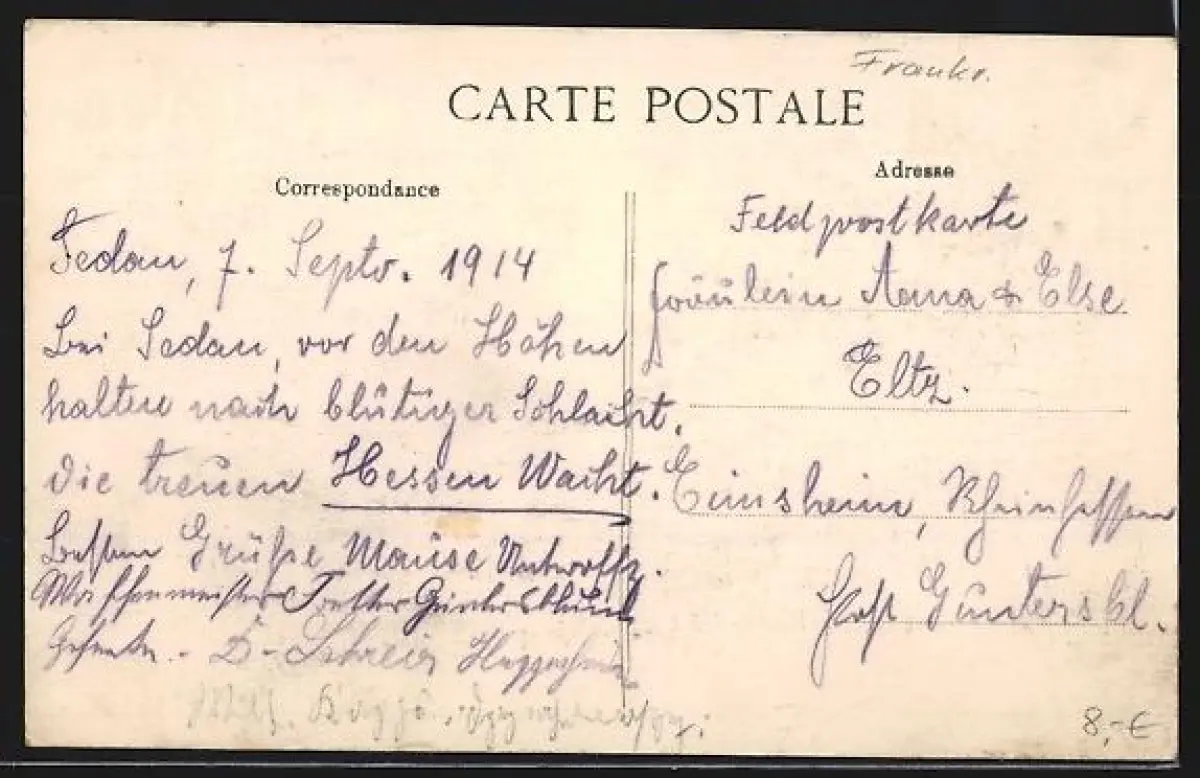 Frankr.
CARTE POSTALE
Correspondance
Sedan, 7. Septr. 1914
Bei Sedan, vor den Höhen
halten nach blutiger Schlacht.
die treuen Hessen Wacht.
Besten Grüße Mause Untroffz.
Waffenmeister Guntersblum
Gefreiter. D-
Adresse
Feldpostkarte
Fräulein Anna & Else
Eltz.
Eimsheim, Rheinhessen
Post Guntersbl.
8,-€